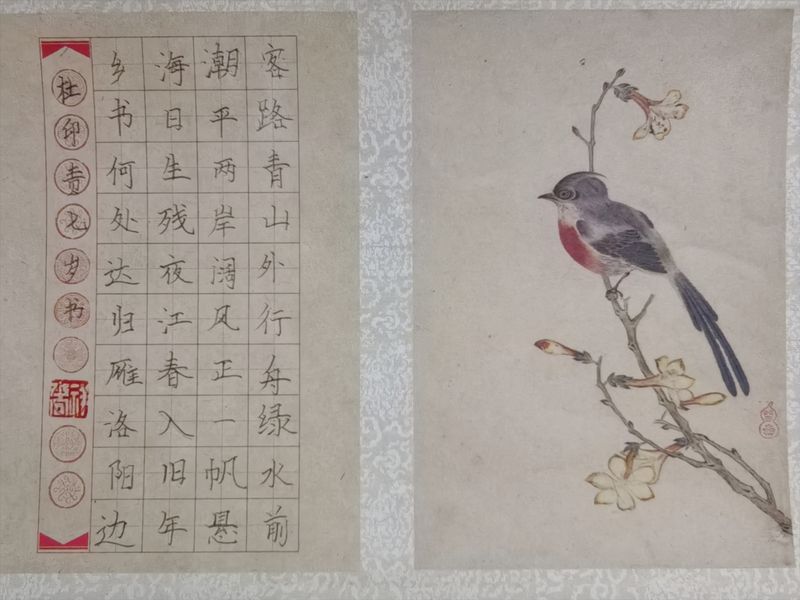 客路青山外行舟绿水前
潮平两岸阔风正一帆悬
海日生残夜江春入旧年
乡书何处达归雁洛阳边
杜印责七岁书